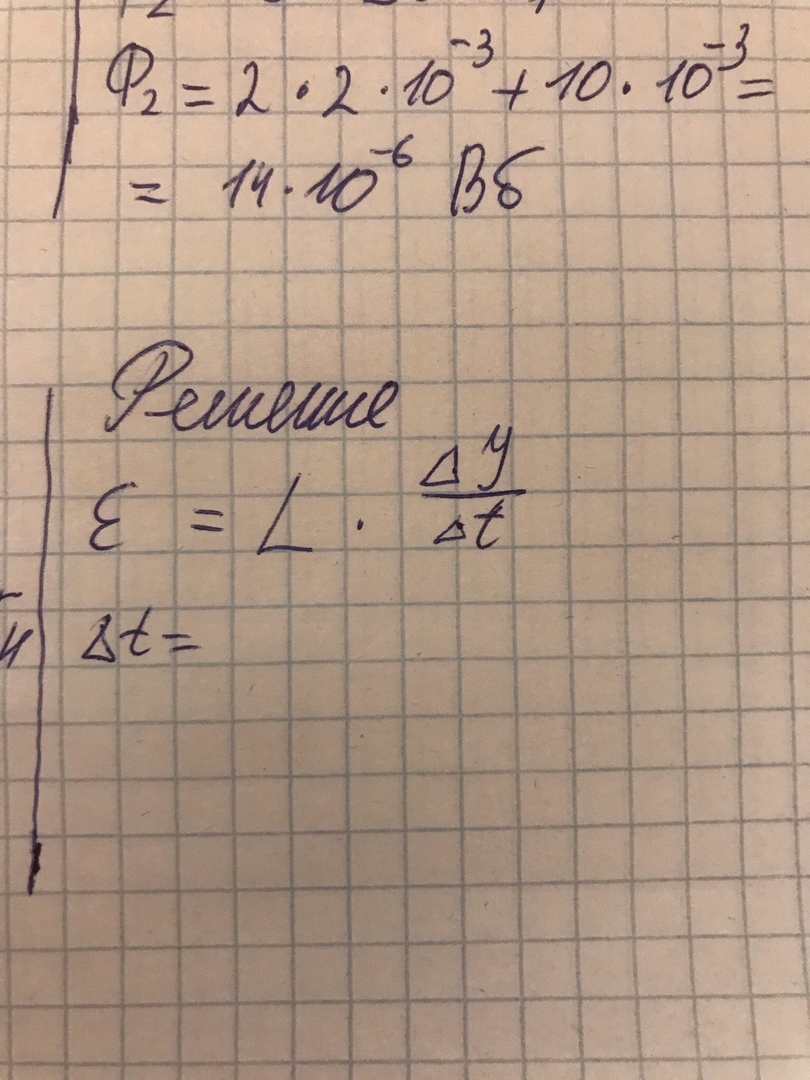 Ф₂ = 2 · 2 · 10⁻³ + 10 · 10⁻³ =
= 14 · 10⁻⁶ Вб
Решение
Ɛ = L · Δ У / Δt
Δt =